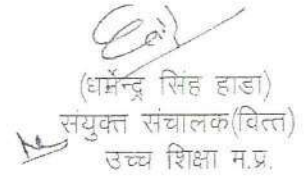 (धर्मेन्द्र सिंह हाडा)
संयुक्त संचालक(वित्त)
उच्च शिक्षा म.प्र.